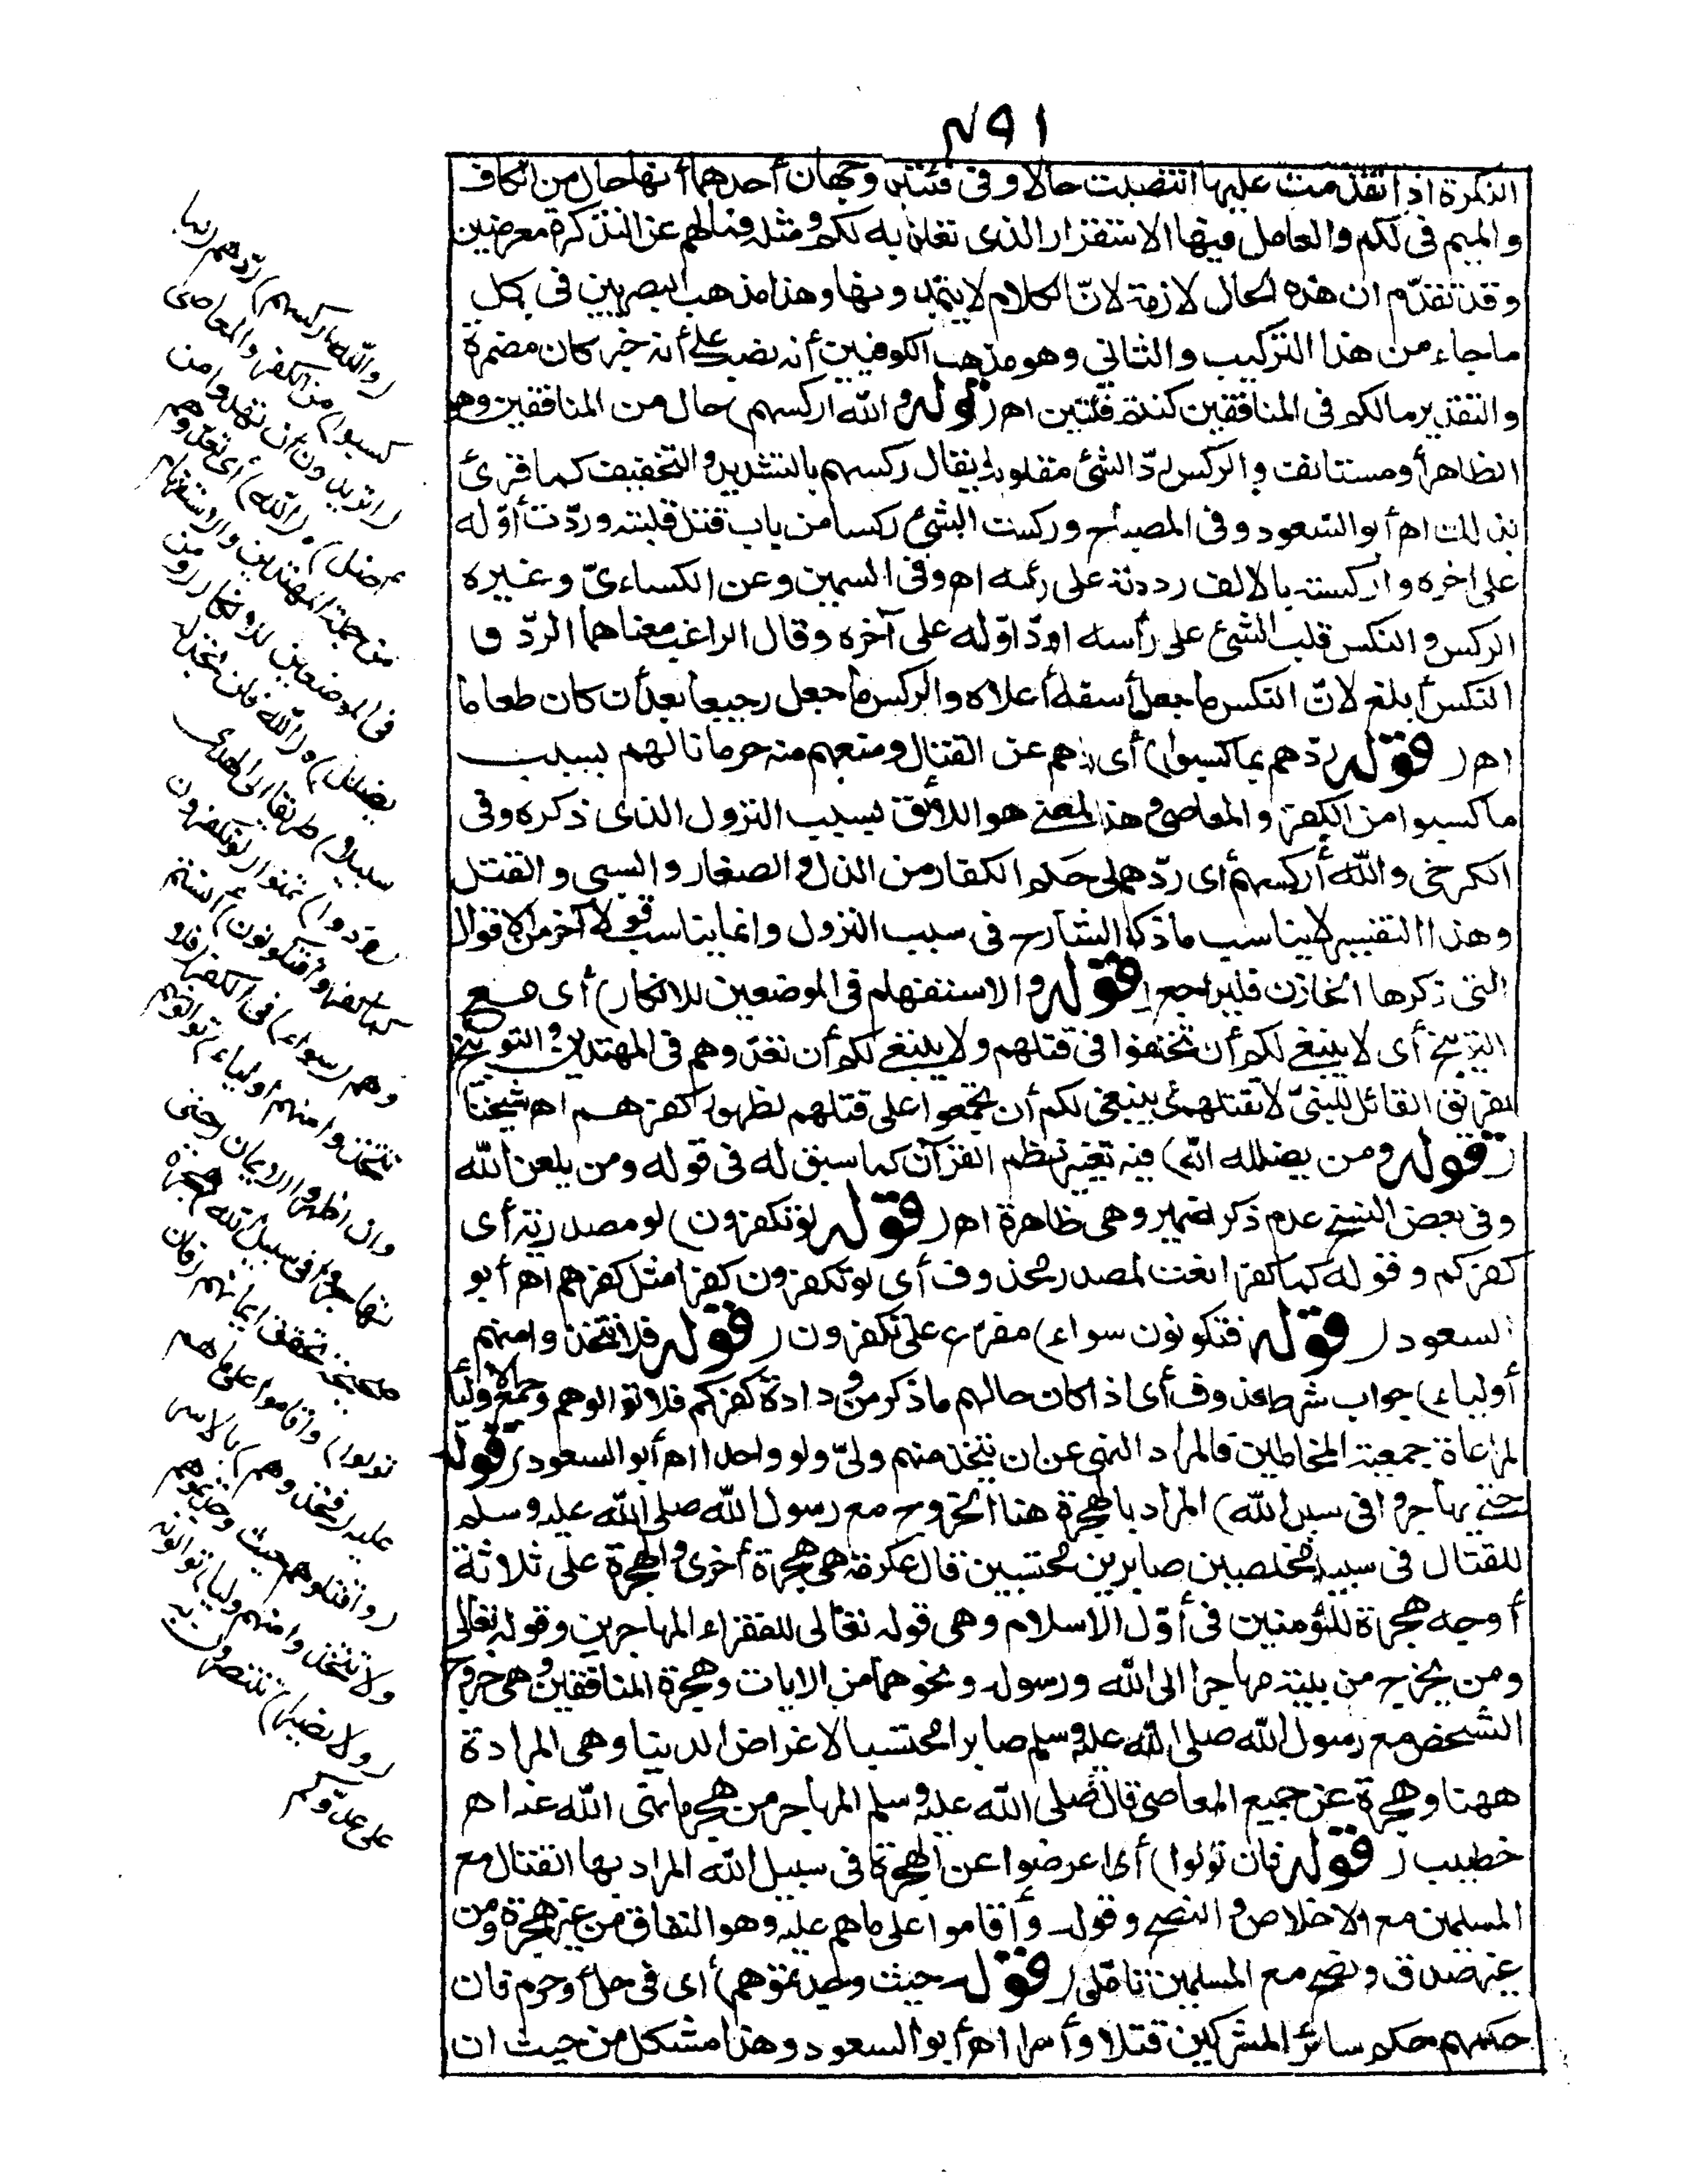 ٤٩١
النكرة اذا تقدمت عليها انتصبت حالا وفى فئتين وجهان أحدهما أنها حال من الكاف
والميم فى لكم والعامل فيها الاستقرار الذى تعلق به لكم ومثله فما لهم عن التذكرة معرضين
وقد تقدّم ان هذه الحال لازمة لانّ الكلام لا يتم بدونها وهذا مذهب البصريين فى كل
ماجاء من هذا التركيب والثانى وهو مذهب الكوفيين أنه نصب على أنه خبر كان مضمرة
والتقدير مالكم فى المنافقين كنتم فئتين اهر (قوله والله اركسهم) حال من المنافقين وهو
الظاهر أو مستانف والركس ردّ الشئ مقلوبا ويقال ركسهم بالتشديد والتخفيف كما قرئ
بذلك اه أبو السعود وفى المصباح وركست الشئ ركسا من باب قتل قلبته ورددت أوّله
على اخره واركسته بالالف رددته على رأسه اه وفى السمين وعن الكساءىّ وغيره
الركس والنكس قلب الشئ على رأسه اوردّ اوّله على آخره وقال الراغب معناهما الردّ و
النكس أبلغ لانّ النكس ما جعل أسفله أعلاه والركس ما جعل رجيعا بعد أن كان طعاما
اهر (قوله ردّهم بما كسبوا) أى ردهم عن القتال ومنعهم منه حرمانا لهم بسبب
ما كسبوا من الكفر والمعاصى وهذا المعنى هو اللائق بسبب النزول الذى ذكره وفى
الكرخى والله أركسهم أى ردّهم الى حكم الكفار من الذل والصغار والسبى والقتل
وهذا التفسير لا يناسب ما ذكره الشارح فى سبب النزول وانما يناسب قولا آخر من الاقوال
التى ذكرها الخازن فليراجع (قوله والاستفهام فى الموضعين للانكار) أى مع
التوبيخ أى لا ينبغى لكم أن تختلفوا فى قتلهم ولا ينبغى لكم أن تعدّوهم فى المهتدين والتوبيخ
للفريق القائل للنبىّ لا تقتلهم أى ينبغى لكم أن تجمعوا على قتلهم لظهور كفرهم اه شيخنا
(قوله ومن يضلله الله) فيه تغيير نظم القرآن كما سبق له فى قوله ومن يلعن الله
وفى بعض النسخ عدم ذكر الضمير وهى ظاهرة اهر (قوله لو تكفرون) لو مصدرية أى
كفركم وقوله كما كفروا نعت لمصدر محذوف أى لو تكفرون كفرا مثل كفرهم اه أبو
السعود (قوله فتكونون سواء) مفرّع على تكفرون (قوله فلا تتخذوا منهم
أولياء) جواب شرط محذوف أى اذا كان حالهم ما ذكر من ودادة كفركم فلا توالوهم وجمع الاولياء
لمراعاة جمعية المخاطبين فالمراد النهى عن ان يتخذ منهم ولىّ ولو واحدا اه أبو السعود (قوله
حتى يهاجروا فى سبيل الله) المراد بالهجرة هنا الخروج مع رسول الله صلى الله عليه وسلم
للقتال فى سبيله مخلصين صابرين محتسبين قال عكرمة هى هجرة أخرى والهجرة على ثلاثة
أوجه هجرة للمؤمنين فى أوّل الاسلام وهى قوله تعالى للفقراء المهاجرين وقوله تعالى
ومن يخرج من بيته مهاجرا الى الله ورسوله ونحوهما من الايات وهجرة المنافقين وهى خروج
الشخص مع رسول الله صلى الله عليه وسلم صابرا محتسبا لا لاغراض الدنيا وهى المرادة
ههنا وهجرة عن جميع المعاصى قال صلى الله عليه وسلم المهاجر من هجر ما نهى الله عنه اه
خطيب (قوله فان تولوا) أى اعرضوا عن الهجرة فى سبيل الله المراد بها القتال مع
المسلمين مع الاخلاص والنصح وقوله وأقاموا على ما هم عليه وهو النفاق من غير هجرة ومن
غير صدق ونصح مع المسلمين تامّل (قوله حيث وجدتموهم) أى فى حل وحرم فان
حكمهم حكم سائر المشركين قتلا وأسرا اه أبو السعود وهذا مشكل من حيث ان
(والله اركسهم) ردّهم (بما
كسبوا) من الكفر والمعاصى
(اتريدون أن تهدوا من
اضل) ه (الله) أى تعدّوهم
من جملة المهتدين والاستفهام
فى الموضعين للانكار (ومن
يضلل) ه (الله فلن تجد له
سبيلا) طريقا الى الهدى
(ودوا) تمنوا (لو تكفرون
كما كفروا فتكونون) أنتم
وهم (سواء) فى الكفر (فلا
تتخذوا منهم أولياء) توالونهم
وان اظهروا الايمان (حتى
يهاجروا فى سبيل الله) هجرة
صحيحة تحقق ايمانهم (فان
تولوا) واقاموا على ما هم
عليه (فخذوهم) بالاسر
(واقتلوهم حيث وجدتموهم
ولا تتخذوا منهم وليا) توالونه
(ولا نصيرا) تنتصرون به
على عدّوكم